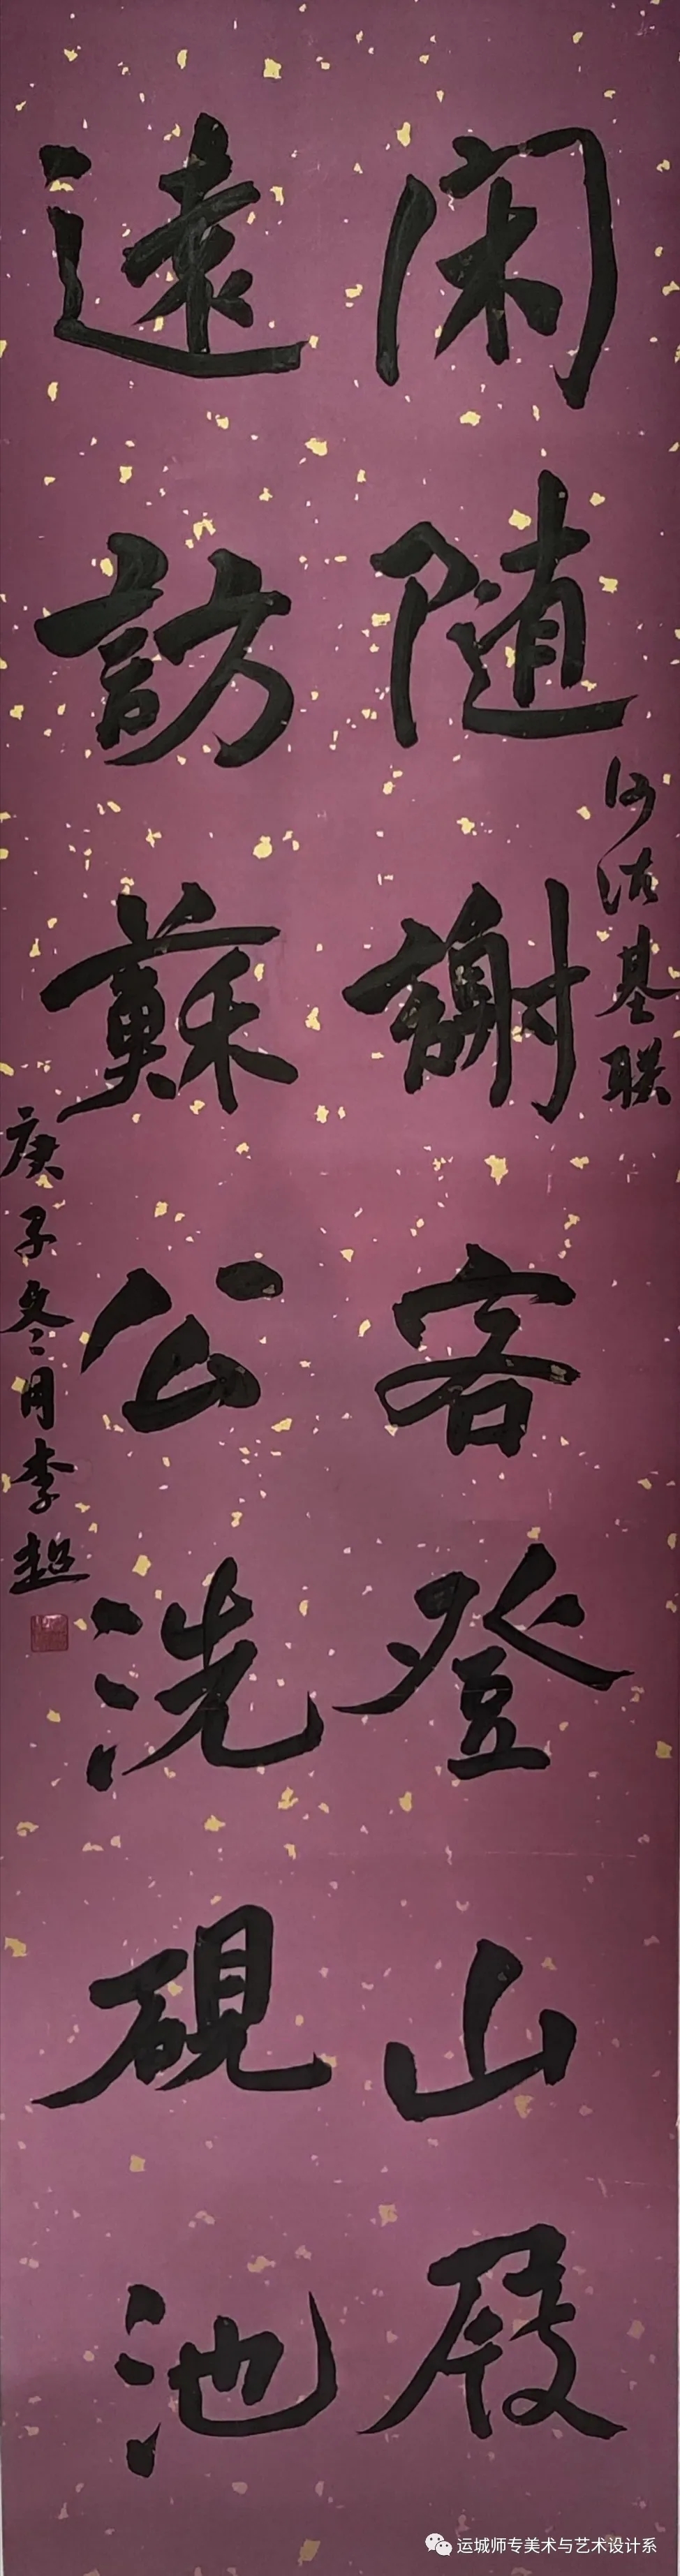 闲随謝客登山屐
何绍基联
遠訪蘇公洗硯池
庚子冬月李超
运城师专美术与艺术设计系